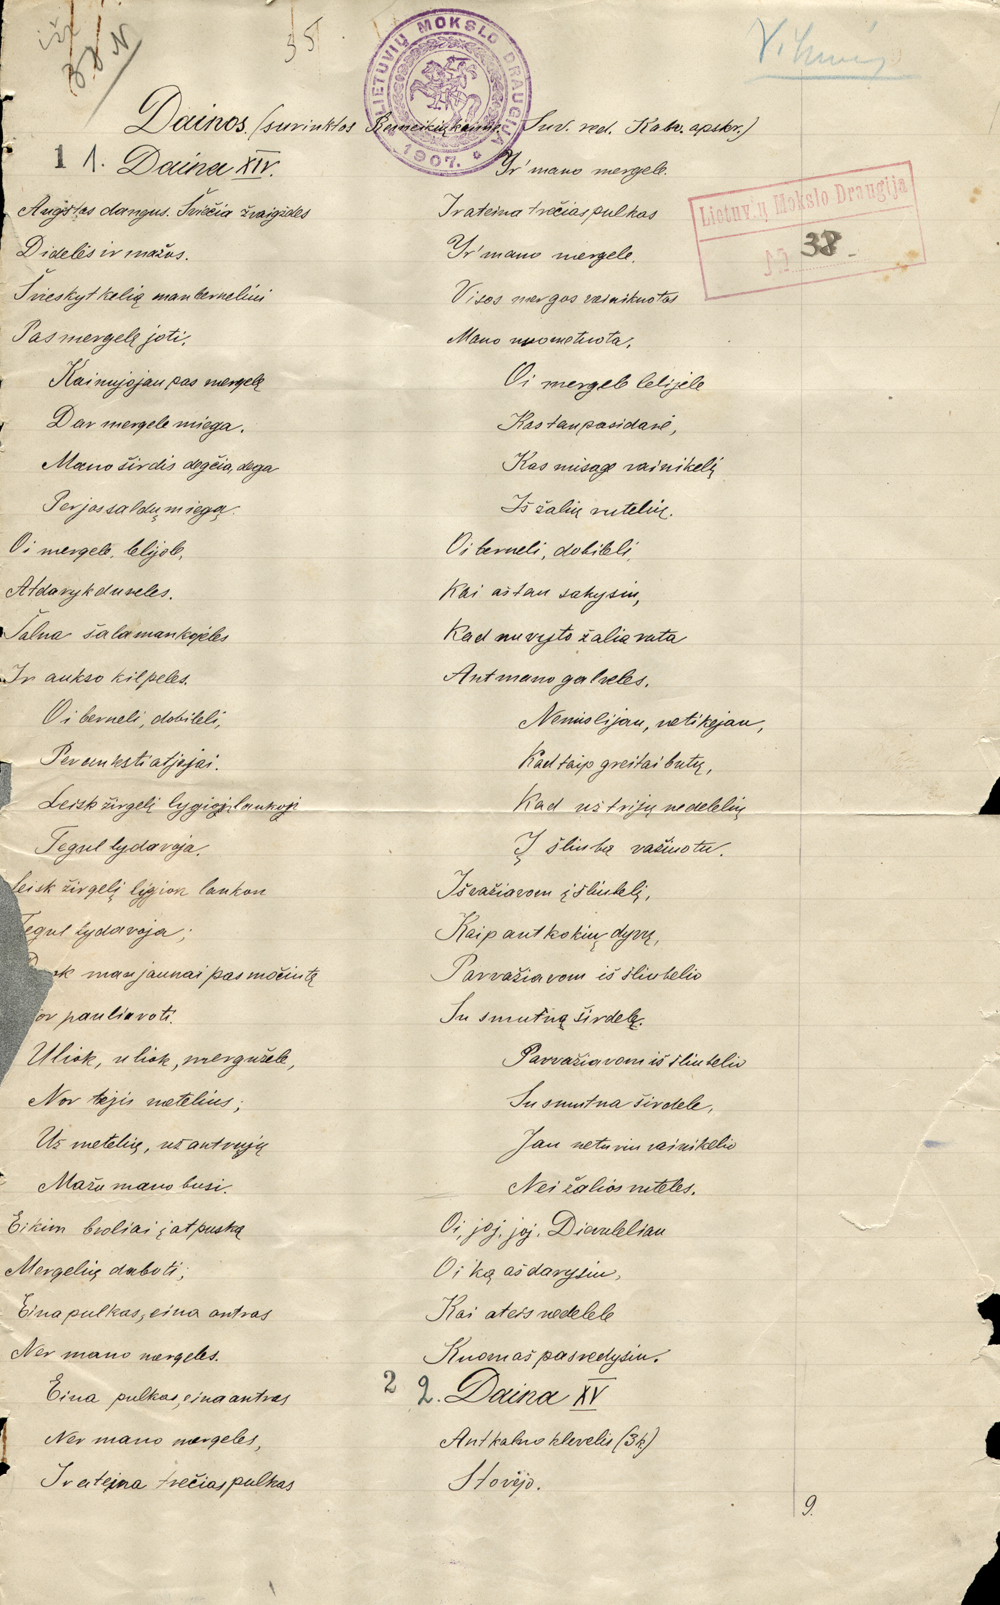 35.
LIETUVIŲ MOKSLO DRAUGIJA
1907.
Dainos. (surinktos Suv. red. Kalv. apskr.)
Lietuvių Mokslo Draugija
№ 38.
1 1. Daina XIV.
Augštas dangus. Šviečia žvaigždės
Didelės ir mažos.
Švieskyt kelią man berneliui
Pas mergelę joti.
Kai nujojau pas mergelę
Dar mergele miega.
Mano širdis degčia, dega
Per jos saldų miegą.
Oi mergele, lelijele,
Atdaryk dureles.
Šalna šala man kojeles
Ir aukso kilpeles.
Oi berneli, dobileli,
Per anksti atjojai.
Leisk žirgelį lygioj laukoj
Tegul lydavoja.
Leisk žirgelį lygion laukon
Tegul lydavoja;
man jaunai pas močiutę
pauliavoti.
Uliok, uliok, mergužele,
Nor trejis metelius;
Už metelių, už antrųjų
Mažu mano busi.
Eikim broliai į atpuską
Mergelių daboti;
Eina pulkas, eina antras
Ner mano mergeles.
Eina pulkas, eina antras
Ner mano mergeles,
Ir ateina trečias pulkas
Yr' mano mergele.
Ir ateina trečias pulkas
Yr' mano mergele.
Visos mergos vainikuotos
Mano nuometuota.
Oi mergele lelijele
Kas tau pasidarė,
Kas nusagė vainikelį
Iš žalių rutelių.
Oi berneli, dobileli
Kai aš tau sakysiu,
Kad nuvyto žalia ruta
Ant mano galveles.
Nemislijau, netikėjau,
Kad taip greitai butų,
Kad už trijų nedelelių
Į šliubą važiuotu.
Išvažiavom į šliubelį,
Kaip ant kokių dyvų,
Parvažiavom iš šliubelio
Su smutną širdelę.
Parvažiavom iš šliubelio
Su smutna širdele,
Jau neturiu vainikelio
Nei žalios ruteles.
Oi, joj, joj, Dievuleliau
Oi ką aš darysiu,
Kai ateis nedelele
Kuom aš pasredysiu.
2 2. Daina XV
Ant kalno klevelis (3k)
Stovėjo.
9.